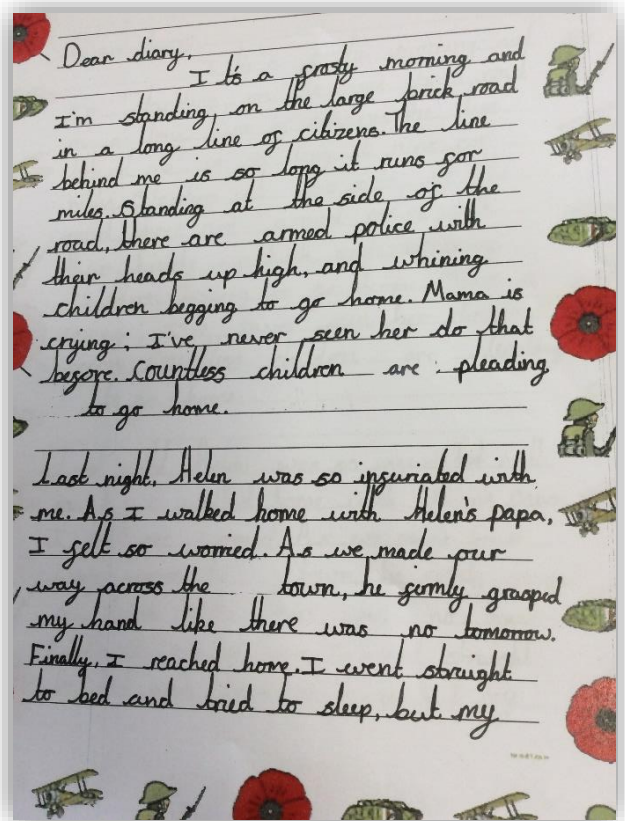 Dear diary,
It's a frosty morning and
I'm standing, on the large brick road
in a long line of citizens. The line
behind me is so long it runs for
miles. Standing at the side of the
road, there are armed police with
their heads up high, and whining
children begging to go home. Mama is
crying; I've never seen her do that
before. Countless children are pleading
to go home.
Last night, Helen was so infuriated with
me. As I walked home with Helen's papa,
I felt so worried. As we made our
way across the town, he firmly grasped
my hand like there was no tomorrow.
Finally, I reached home. I went straight
to bed and tried to sleep, but my